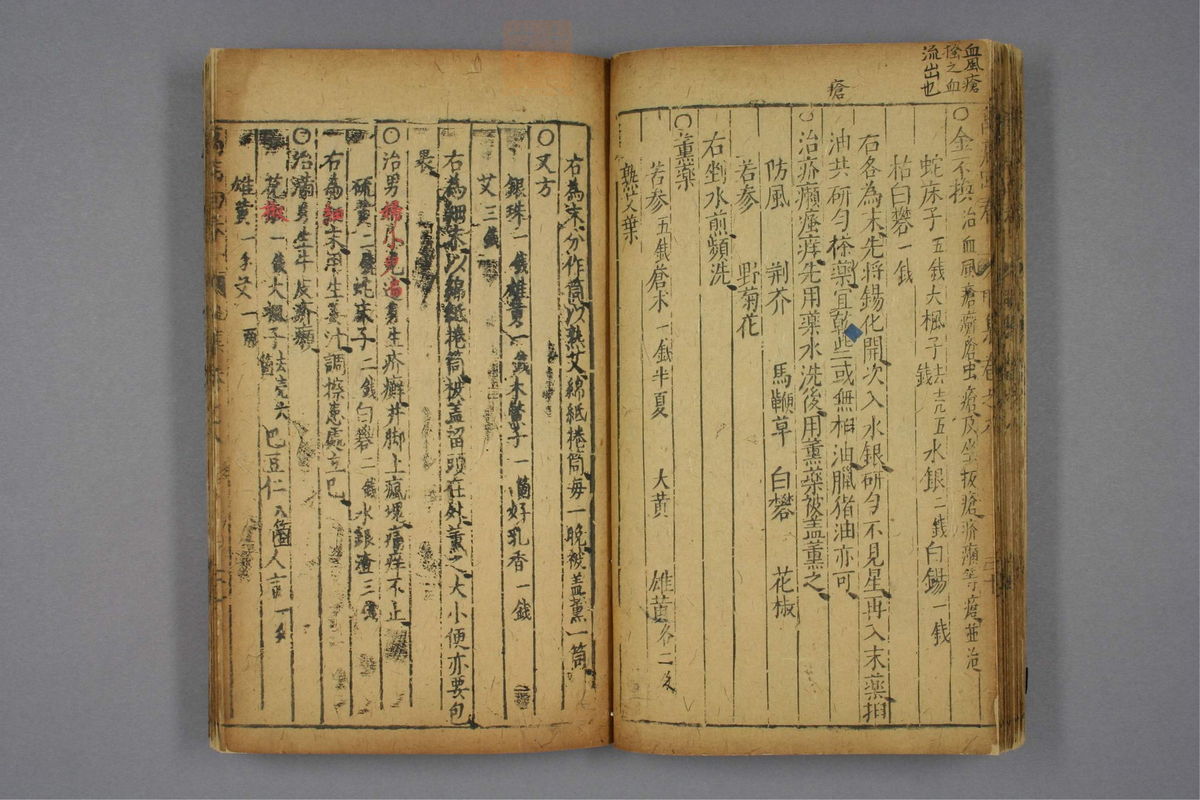 血風瘡
搽之血
流出也
瘡
○金不換治血風瘡癬瘡虫瘡及坐板瘡疥癩等瘡並治
蛇床子五錢大楓子去壳五錢水銀二錢白錫一錢
枯白礬一錢
右各為末先將錫化開次入水銀研勻不見星再入末藥
油共研勻搽藥宜乾些或無桕油臘猪油亦可
○治疥癩瘙痒先用藥水洗後用薰藥被盖薰之
防風 荊芥 馬鞭草 白礬 花椒
苦參 野菊花
右剉水煎頻洗
○薰藥
苦參五錢蒼术一錢半夏 大黃 雄黃各二
熟艾葉
右為末分作 筒以熟艾綿紙捲筒每一晚被盖薰一筒
○又方
銀珠一錢雄黃一錢木鱉子一箇好乳香一錢
艾三錢
右為細末以綿紙捲筒被盖留頭在外薰之大小便亦要包
畏
○治男婦小兒遍身生疥癬并脚上瘋塊痛痒不止
硫黃二錢蛇床子二錢白礬二錢水銀渣三錢
右為細末用生姜汁調搽患處立巴
○治滿身生牛皮癬癩
花椒一錢大楓子去壳六箇巴豆仁八箇人言一分
雄黃一分艾一兩